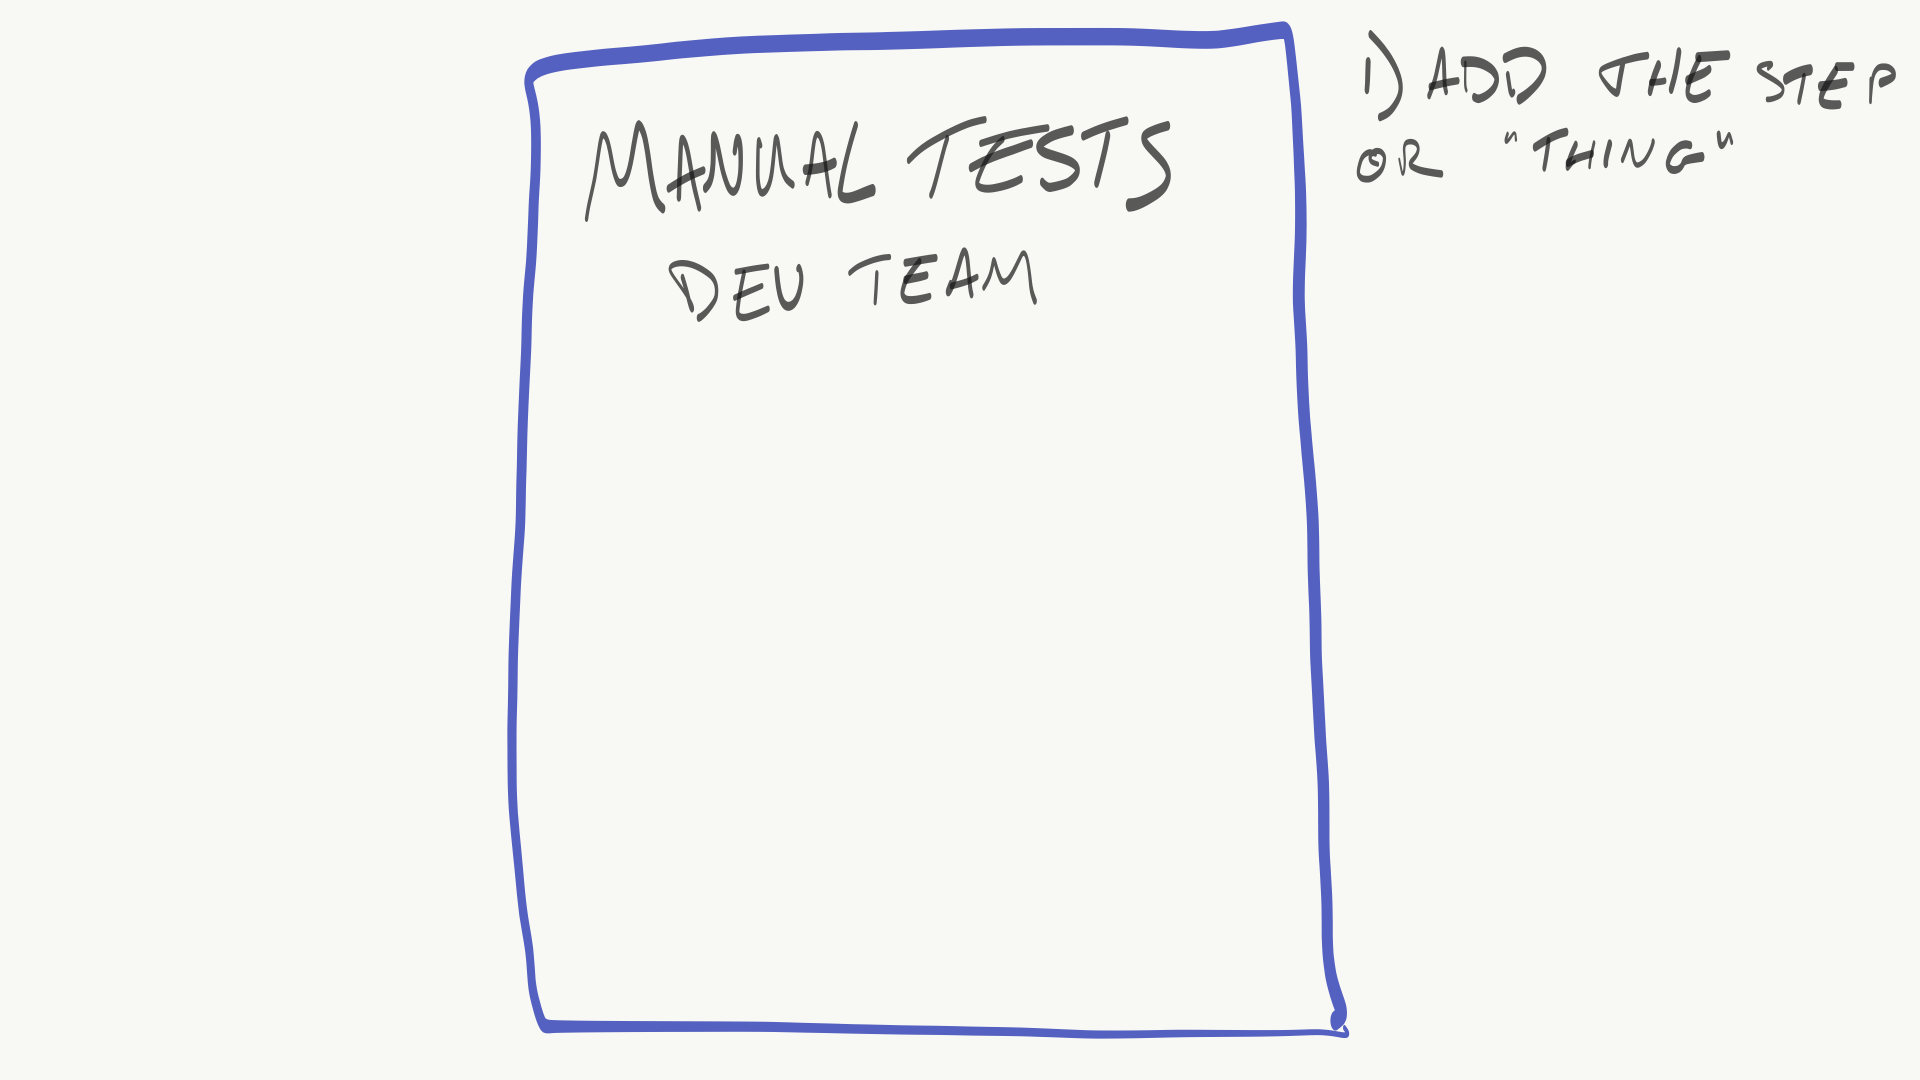 MANUAL TESTS
DEV TEAM
1) ADD THE STEP
OR "THING"